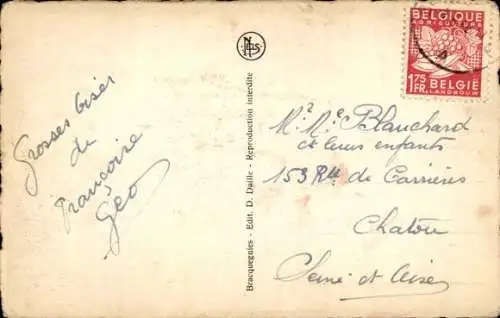 Grosses bises
de
Françoise
Géo
Bracquegnies - Edit. D. Daille - Reproduction interdite
BELGIQUE
AGRICULTURE
1,75 FR
BELGIË
LANDBOUW
Mr Me Blanchard
et leurs enfants
153 Rue de Carrières
Chatou
Seine et Oise